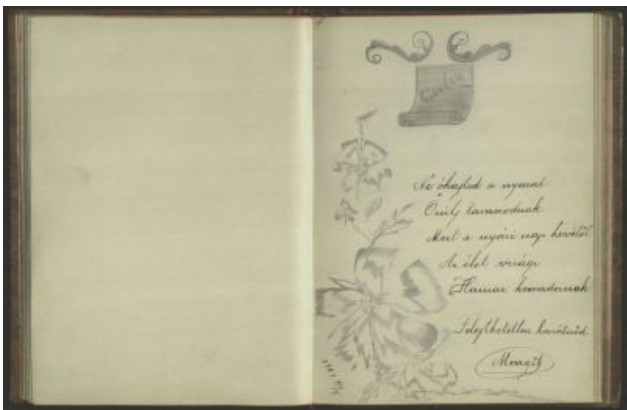 Ne óhajtsd a nyarat
Örülj tavaszodnak
Mert a nyári nap hevétől
Az élet virági
Hamar hervadoznak
barátnőd
Margit